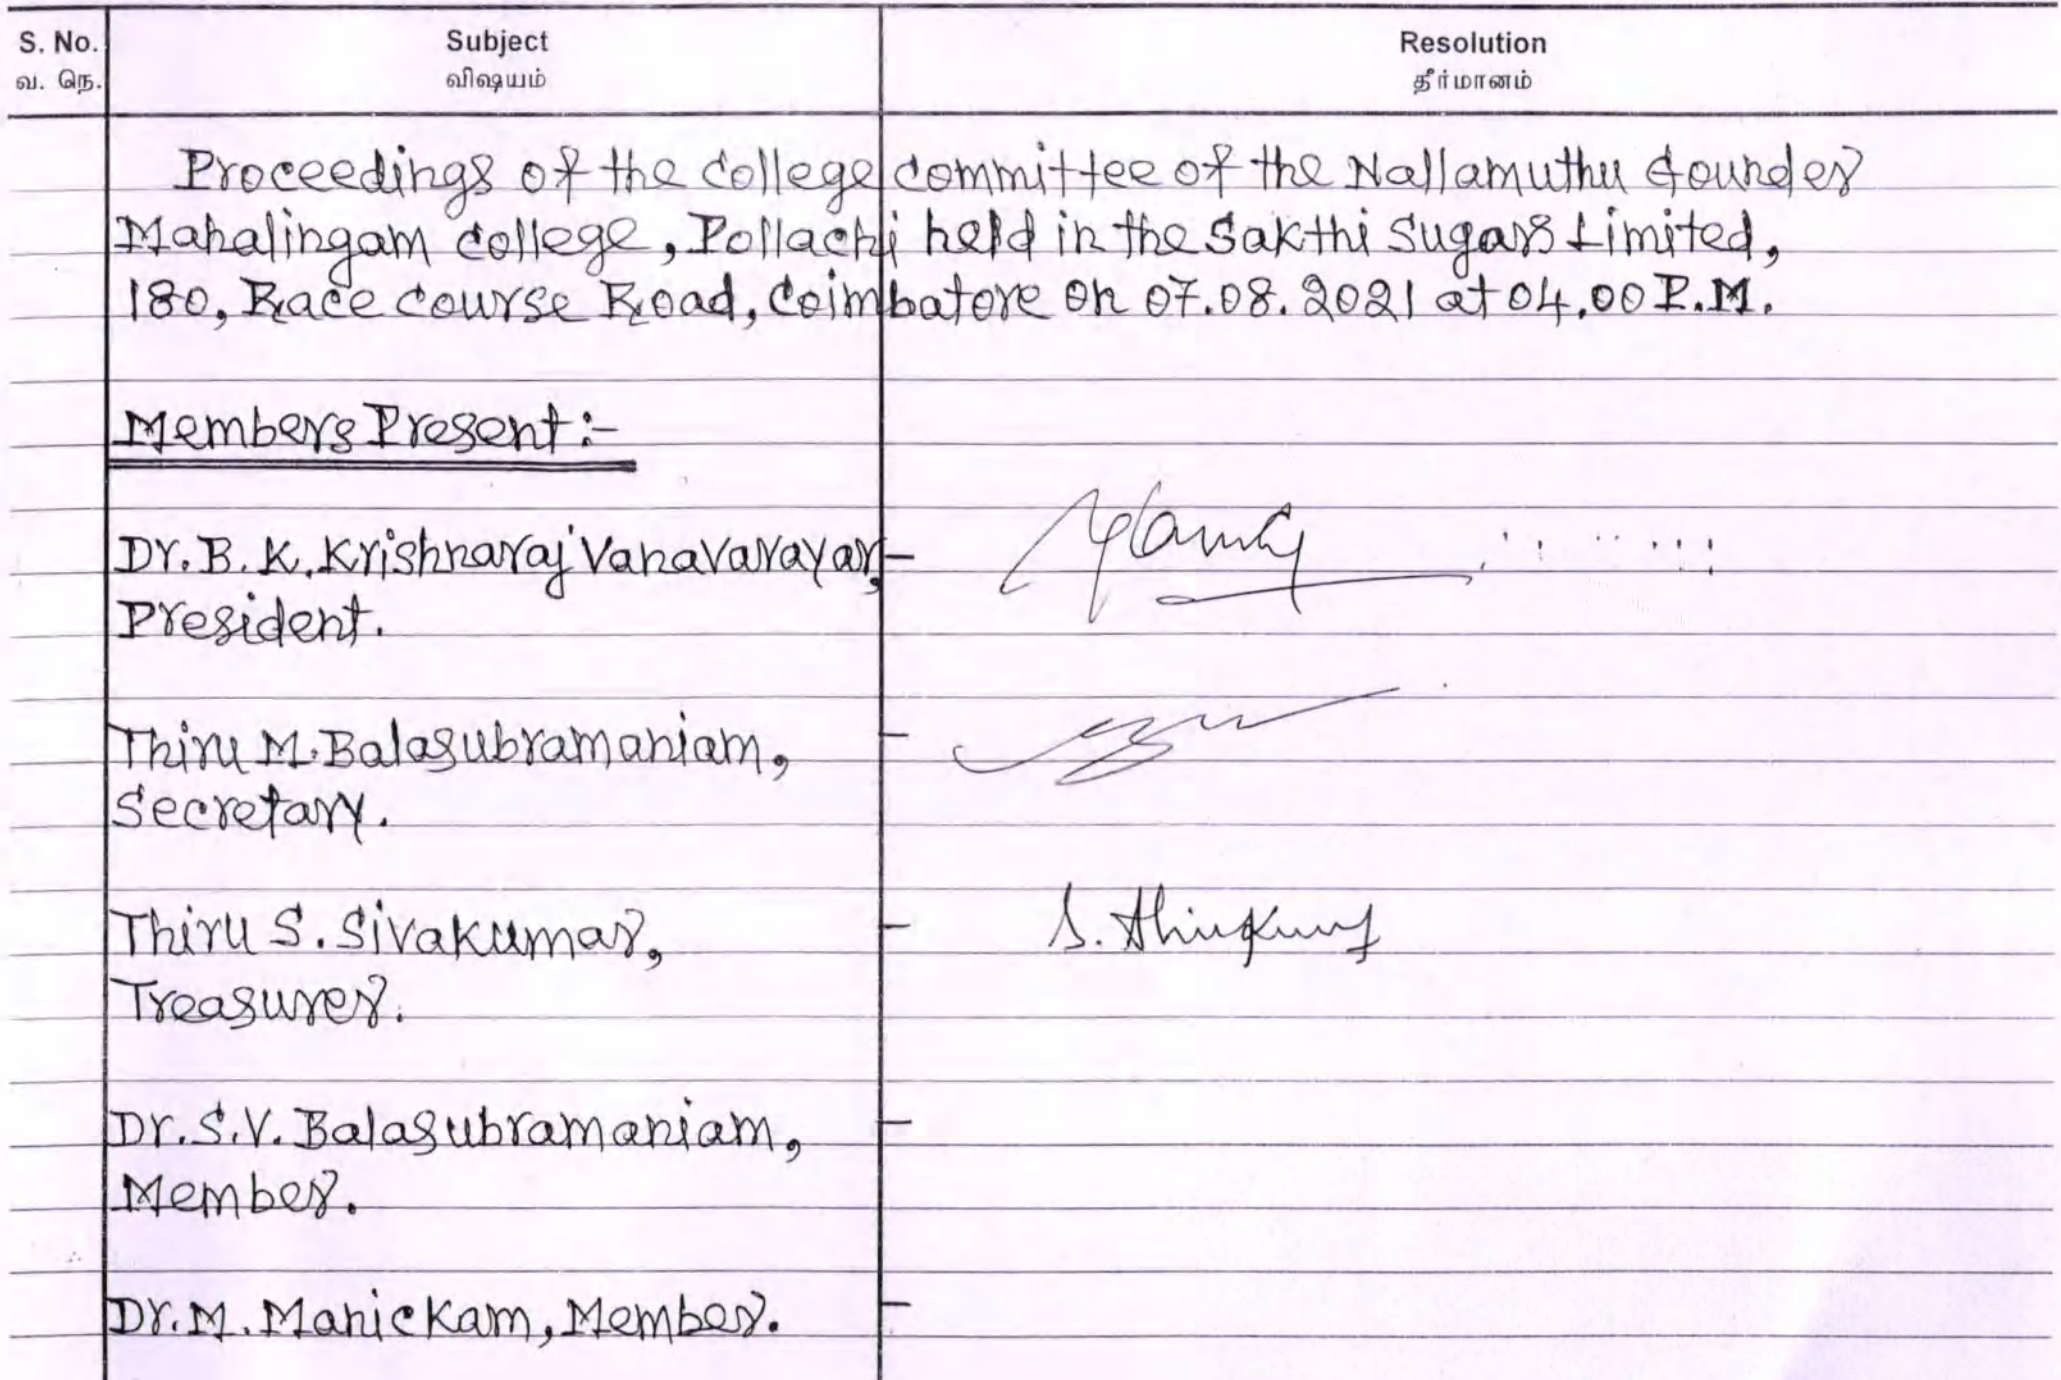 S. No. Subject Resolution
வ. நெ. விஷயம் தீர்மானம்
Proceedings of the college committee of the Nallamuthu Gounder
Mahalingam college, Pollachi held in the Sakthi Sugars Limited,
180, Race course Road, Coimbatore on 07.08.2021 at 04.00 P.M.
Members Present:-
Dr. B. K. Krishnaraj Vanavarayar, -
President.
Thiru M. Balasubramaniam, -
Secretary.
Thiru S. Sivakumar, -
Treasurer.
Dr. S.V. Balasubramaniam, -
Member.
Dr. M. Manickam, Member. -